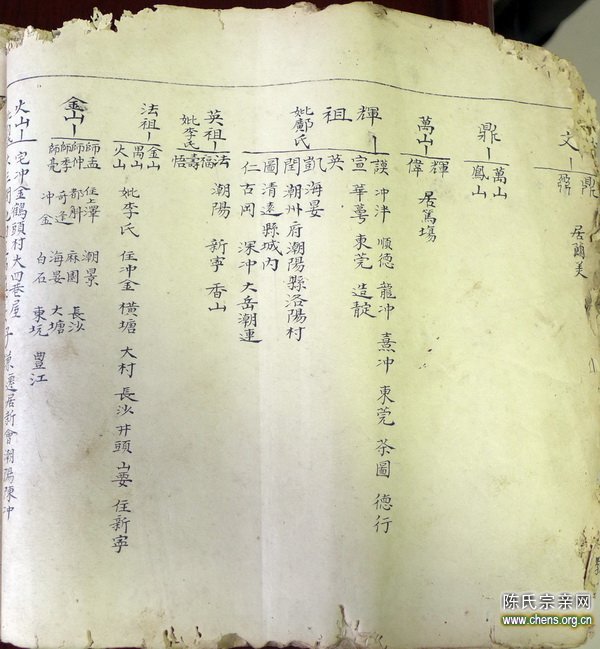 文
鼎
居
美
鼎
萬山
鳳山
萬山
輝
偉
居篤塲
輝祖
妣鄺氏
謨 冲泮 順德 龍冲 熹冲 東莞 茶園 德行
宣 華蕚 東莞 造靛
英
凱 海晏
閏 潮州府潮陽縣洛陽村
圖 清遠縣城内
仁 古岡 深冲 大岳潮連
英祖
妣李氏
法 潮陽 新寧 香山
福
壽
悟
法祖
金山
禺山
火山
妣李氏 住冲金 橫塘 大村 長沙 井頭 山要 住新寧
金山
師孟 住上澤 潮景
師仲 都斛 麻園 長沙
師季 奇逢 海晏 大塘
師亳 冲金 白石 東坑 豊江
火山
宅冲金鶴頭村大四巷屋
遷居新會潮陽陳冲
陈氏宗亲网
www.chens.org.cn